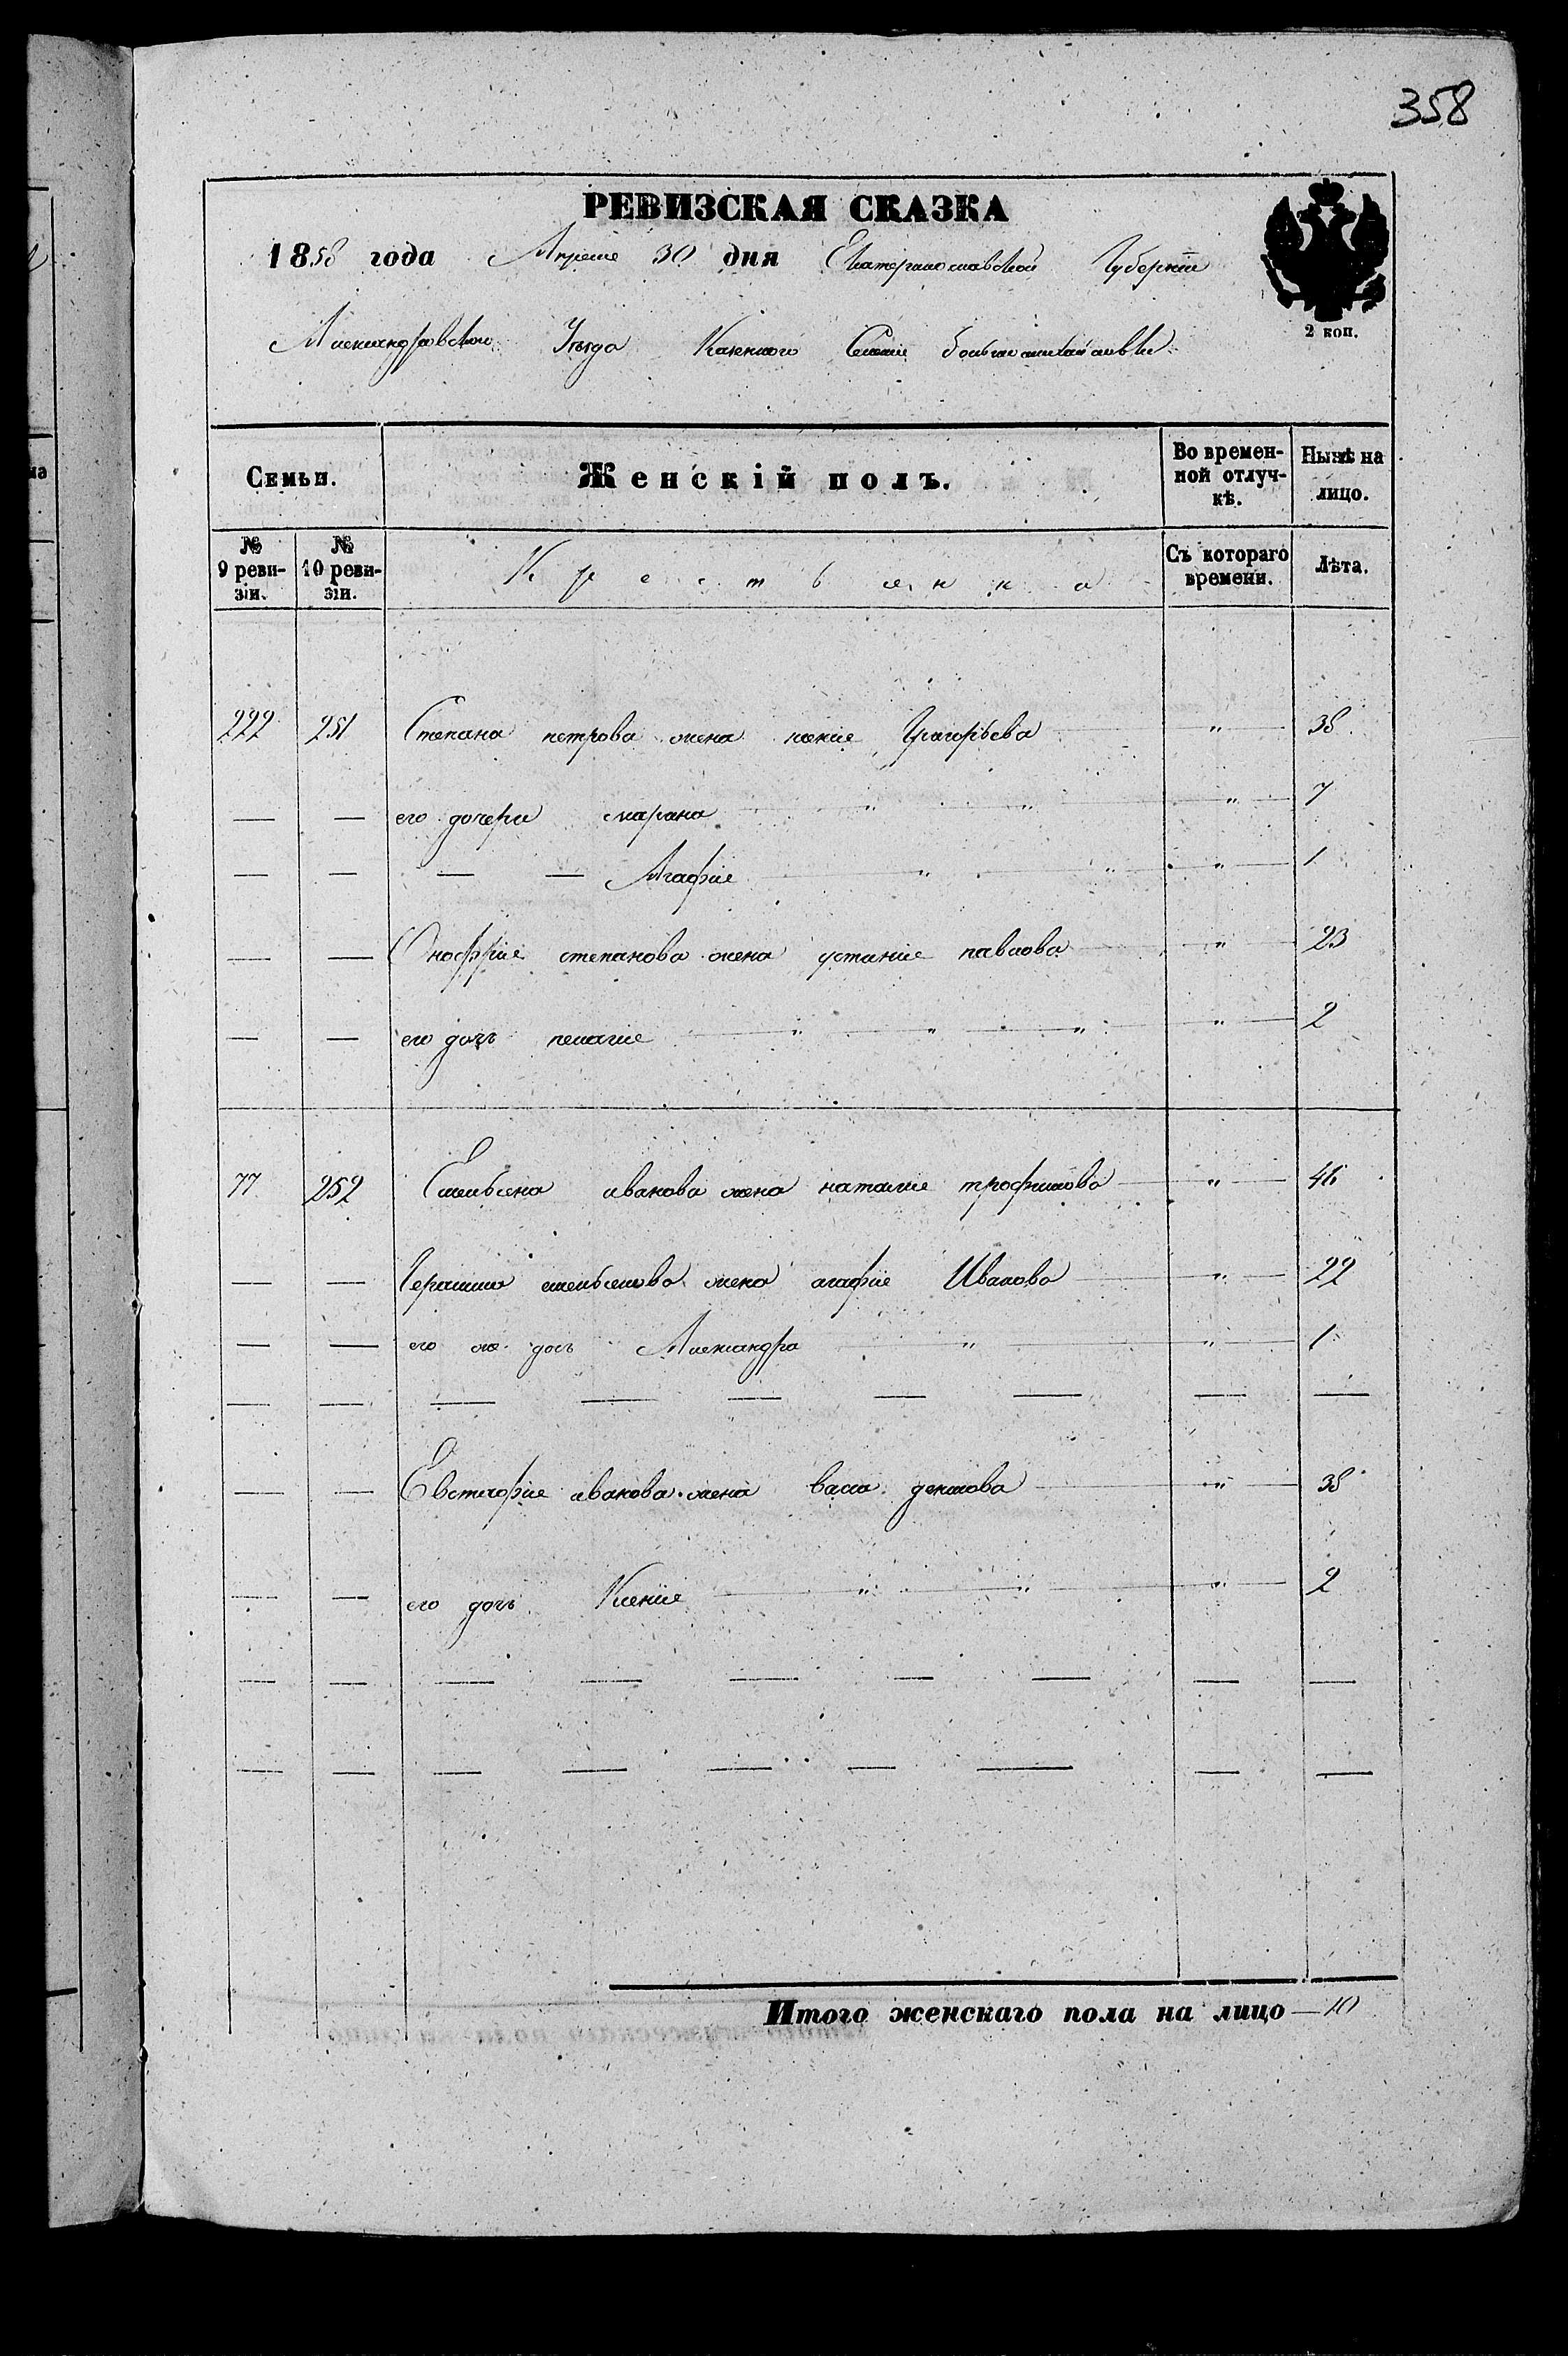 358
РЕВИЗСКАЯ СКАЗКА
1858 года Апреля 30 дня Екатеринославской Губернии
Александровского Уезда Казенного Селения большомихайловки
2 коп.
Семьи. Женскій полъ. Во времен-ной отлуч-кѣ. Нынѣ на лицо.
№ 9 реви-зіи. № 10 реви-зіи. Крестьянка Съ котораго времени. Лѣта.
222 251 Степана петрова жена Григорьева " 38
— — его дочери марина " " " 7
— — — — Агафия " " " 1
— — Онофрия степанова жена устиния павлова " 23
— — его дочь пелагия " " " " 2
77 252 Емельяна иванова жена наталия трофимова " 46
— — Герасима емельянова жена агафия Иванова " 22
— — его же дочь Александра " " 1
— — — — — — — — —
— — Евстафия иванова жена васса " 38
— — его дочь Ксения " " " 2
— — — — — — — — —
— — — — — — — — —
Итого женскаго пола на лицо — 10